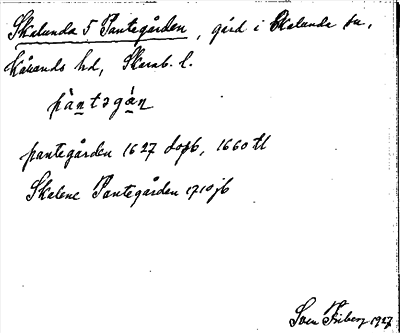 Skalunda 5 Pantegården, gård i Skalunda sn,
Kållands hd, Skarab. l.
pàntǝgán
pantegården 1627 dopb, 1660 tl
Skalene Pantegården 1710 jb
Sven Friberg 1927